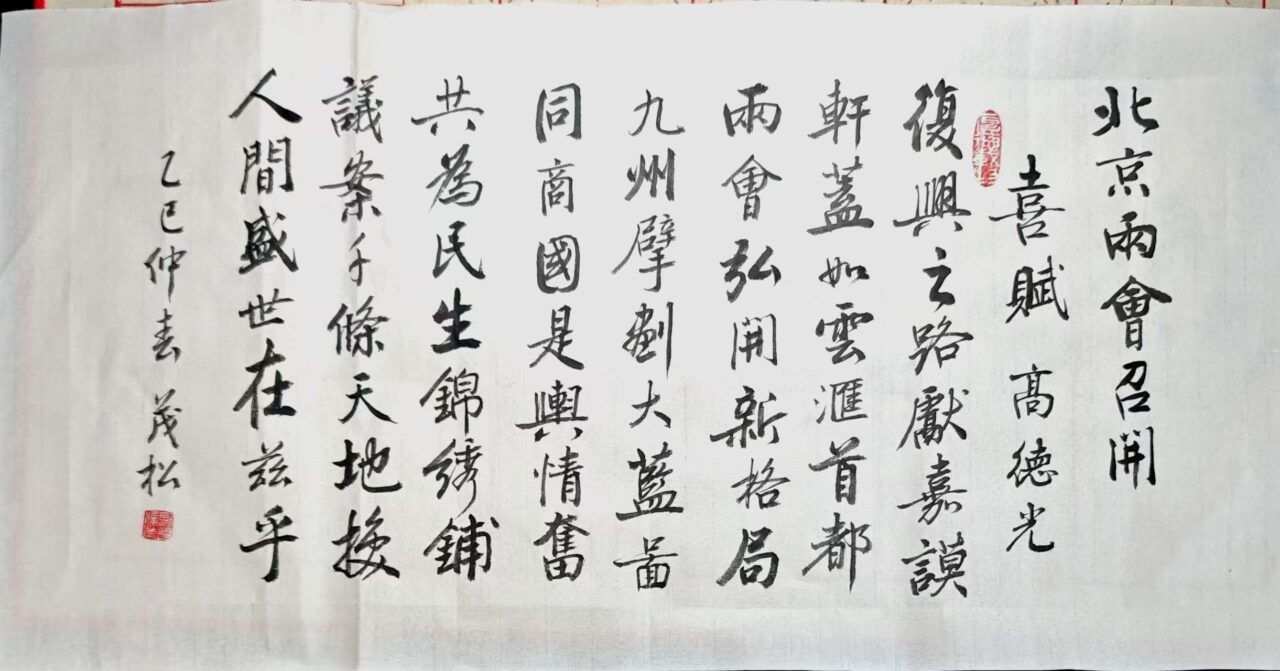 北京兩會召開
喜賦 高德光
復興之路獻嘉謨
軒蓋如雲滙首都
兩會弘開新格局
九州擘劃大藍啚
同商國是輿情奮
共為民生錦綉鋪
議案千條天地換
人間盛世在茲乎
乙巳仲春 茂松